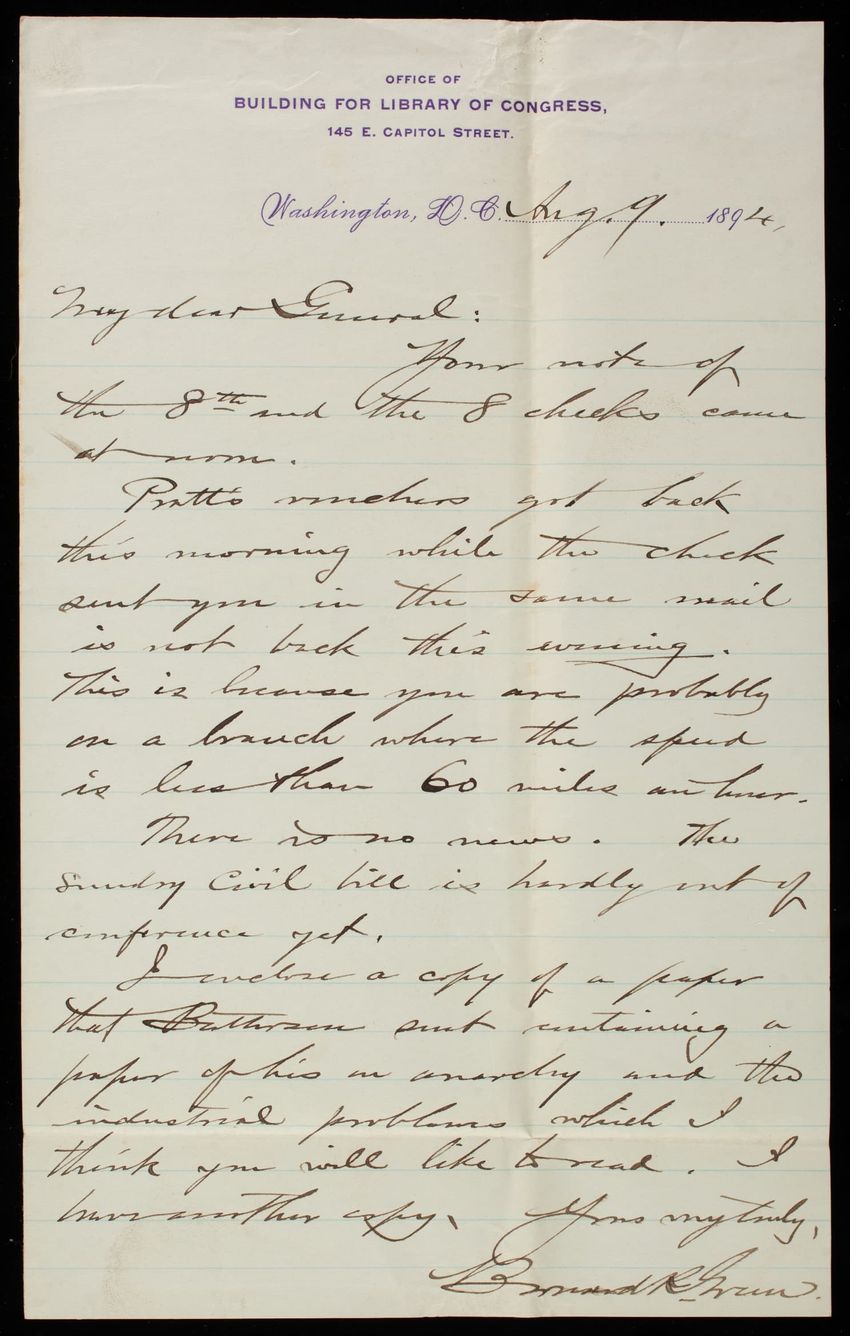 OFFICE OF
BUILDING FOR LIBRARY OF CONGRESS,
145 E. CAPITOL STREET.
Washington, D. C. Aug. 9. 1894,
My dear General:
Your note of
the 8th and the 8 checks came
at noon.
Pratt's vouchers got back
this morning while the check
sent you in the same mail
is not back this evening.
This is because you are probably
on a branch where the speed
is less than 60 miles an hour.
There is no news. The
Sundry Civil bill is hardly out of
conference yet.
I enclose a copy of a paper
that Batterson sent containing a
paper of his on anarchy and the
industrial problems which I
think you will like to read. I
have another copy. Yours very truly,
Bernard R. Green.